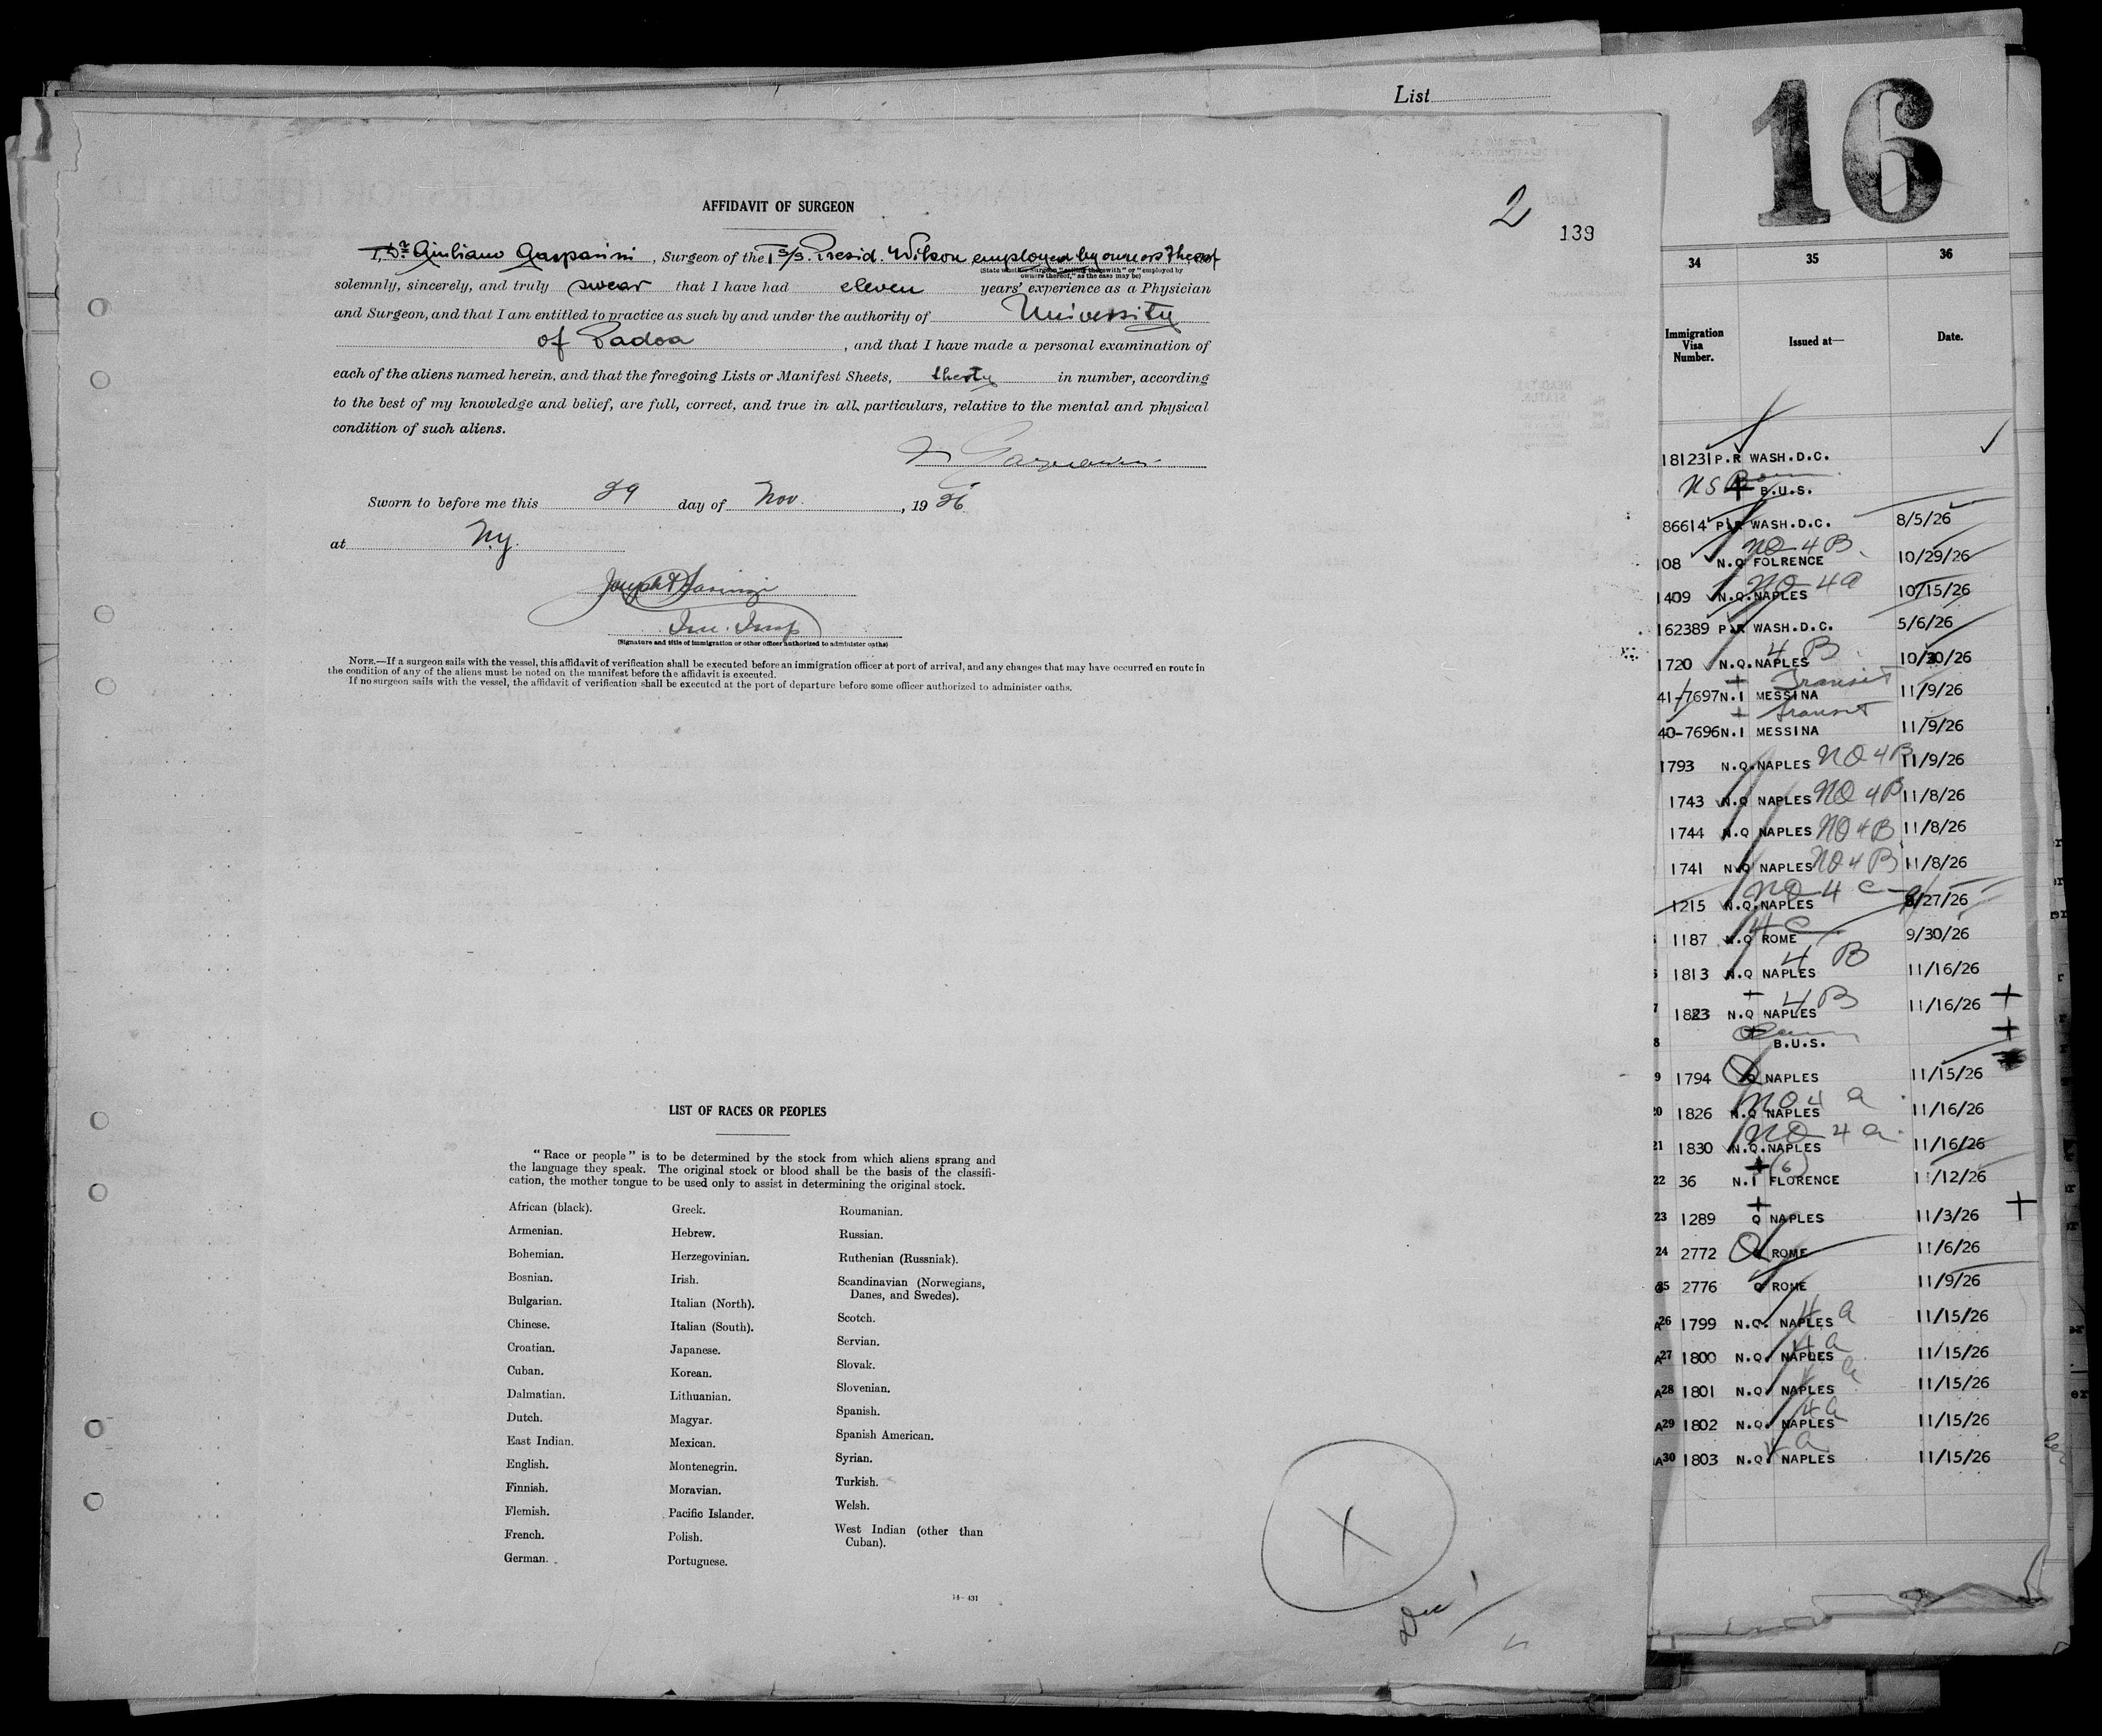 List
16
2
139
AFFIDAVIT OF SURGEON
I, Dr. Giuliano Gasparini, Surgeon of the T s/s. Presid. Wilson employed by owners thereof
(State whether Surgeon "sailing therewith" or "employed by
owners thereof," as the case may be)
solemnly, sincerely, and truly swear that I have had eleven years' experience as a Physician
and Surgeon, and that I am entitled to practice as such by and under the authority of University
of Padoa, and that I have made a personal examination of
each of the aliens named herein, and that the foregoing Lists or Manifest Sheets, in number, according
to the best of my knowledge and belief, are full, correct, and true in all particulars, relative to the mental and physical
condition of such aliens.
Sworn to before me this 29 day of Nov., 1926
at N.y.
Joseph
Imm. Insp
(Signature and title of immigration or other officer authorized to administer oaths)
NOTE.—If a surgeon sails with the vessel, this affidavit of verification shall be executed before an immigration officer at port of arrival, and any changes that may have occurred en route in
the condition of any of the aliens must be noted on the manifest before the affidavit is executed.
If no surgeon sails with the vessel, the affidavit of verification shall be executed at the port of departure before some officer authorized to administer oaths.
LIST OF RACES OR PEOPLES
"Race or people" is to be determined by the stock from which aliens sprang and
the language they speak. The original stock or blood shall be the basis of the classifi-
cation, the mother tongue to be used only to assist in determining the original stock.
African (black).
Armenian.
Bohemian.
Bosnian.
Bulgarian.
Chinese.
Croatian.
Cuban.
Dalmatian.
Dutch.
East Indian.
English.
Finnish.
Flemish.
French.
German.
Greek.
Hebrew.
Herzegovinian.
Irish.
Italian (North).
Italian (South).
Japanese.
Korean.
Lithuanian.
Magyar.
Mexican.
Montenegrin.
Moravian.
Pacific Islander.
Polish.
Portuguese.
Roumanian.
Russian.
Ruthenian (Russniak).
Scandinavian (Norwegians,
Danes, and Swedes).
Scotch.
Servian.
Slovak.
Slovenian.
Spanish.
Spanish American.
Syrian.
Turkish.
Welsh.
West Indian (other than
Cuban).
14-431
X
34 35 36
Immigration
Visa
Number.
Issued at—
Date.
181231 P.R WASH.D.C.
B.U.S.
86614 P.R WASH.D.C. 8/5/26
NQ 4 B
108 N.Q FOLRENCE 10/29/26
NQ 4a
1409 N.Q.NAPLES 10/15/26
162389 P.R WASH.D.C. 5/6/26
4 B
1720 N.Q.NAPLES 10/30/26
Transit
41-7697 N.I MESSINA 11/9/26
transit
40-7696 N.I MESSINA 11/9/26
1793 N.Q.NAPLES NQ 4B 11/9/26
1743 N.Q NAPLES NQ 4B 11/8/26
1744 N.Q NAPLES NQ 4B 11/8/26
1741 N.Q NAPLES NQ 4B 11/8/26
NQ 4 C
1215 N.Q.NAPLES /27/26
4 C
1187 N.Q ROME 9/30/26
4 B
1813 N.Q NAPLES 11/16/26
4 B
7 1823 N.Q NAPLES 11/16/26
8 B.U.S.
9 1794 Q NAPLES 11/15/26
NQ 4 a
20 1826 N.Q NAPLES 11/16/26
NQ 4 a
21 1830 N.Q.NAPLES 11/16/26
(6)
22 36 N.I FLORENCE 11/12/26
23 1289 Q NAPLES 11/3/26
24 2772 Q ROME 11/6/26
25 2776 Q ROME 11/9/26
4 a
A26 1799 N.Q. NAPLES 11/15/26
4a
A27 1800 N.Q. NAPLES 11/15/26
a
A28 1801 N.Q. NAPLES 11/15/26
4a
A29 1802 N.Q. NAPLES 11/15/26
4 a
A30 1803 N.Q. NAPLES 11/15/26